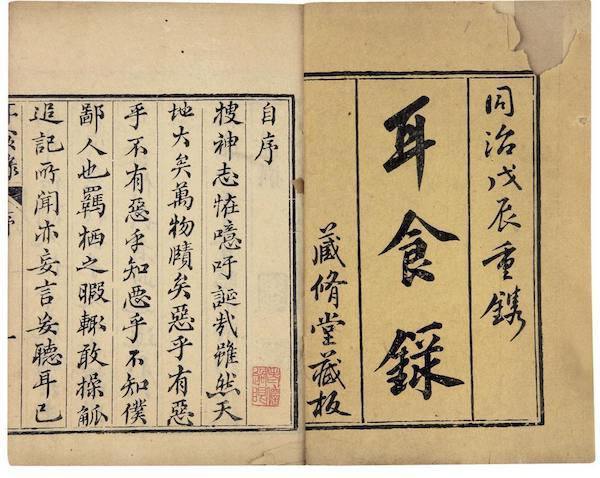 同治戊辰重鐫
耳食錄
藏脩堂藏板
自序
搜神志怪噫吁誕哉雖然天
地大矣萬物賾矣惡乎有惡
乎不有惡乎知惡乎不知僕
鄙人也羈栖之暇輒敢操觚
追記所聞亦妄言妄聽耳已
耳食錄 序 一